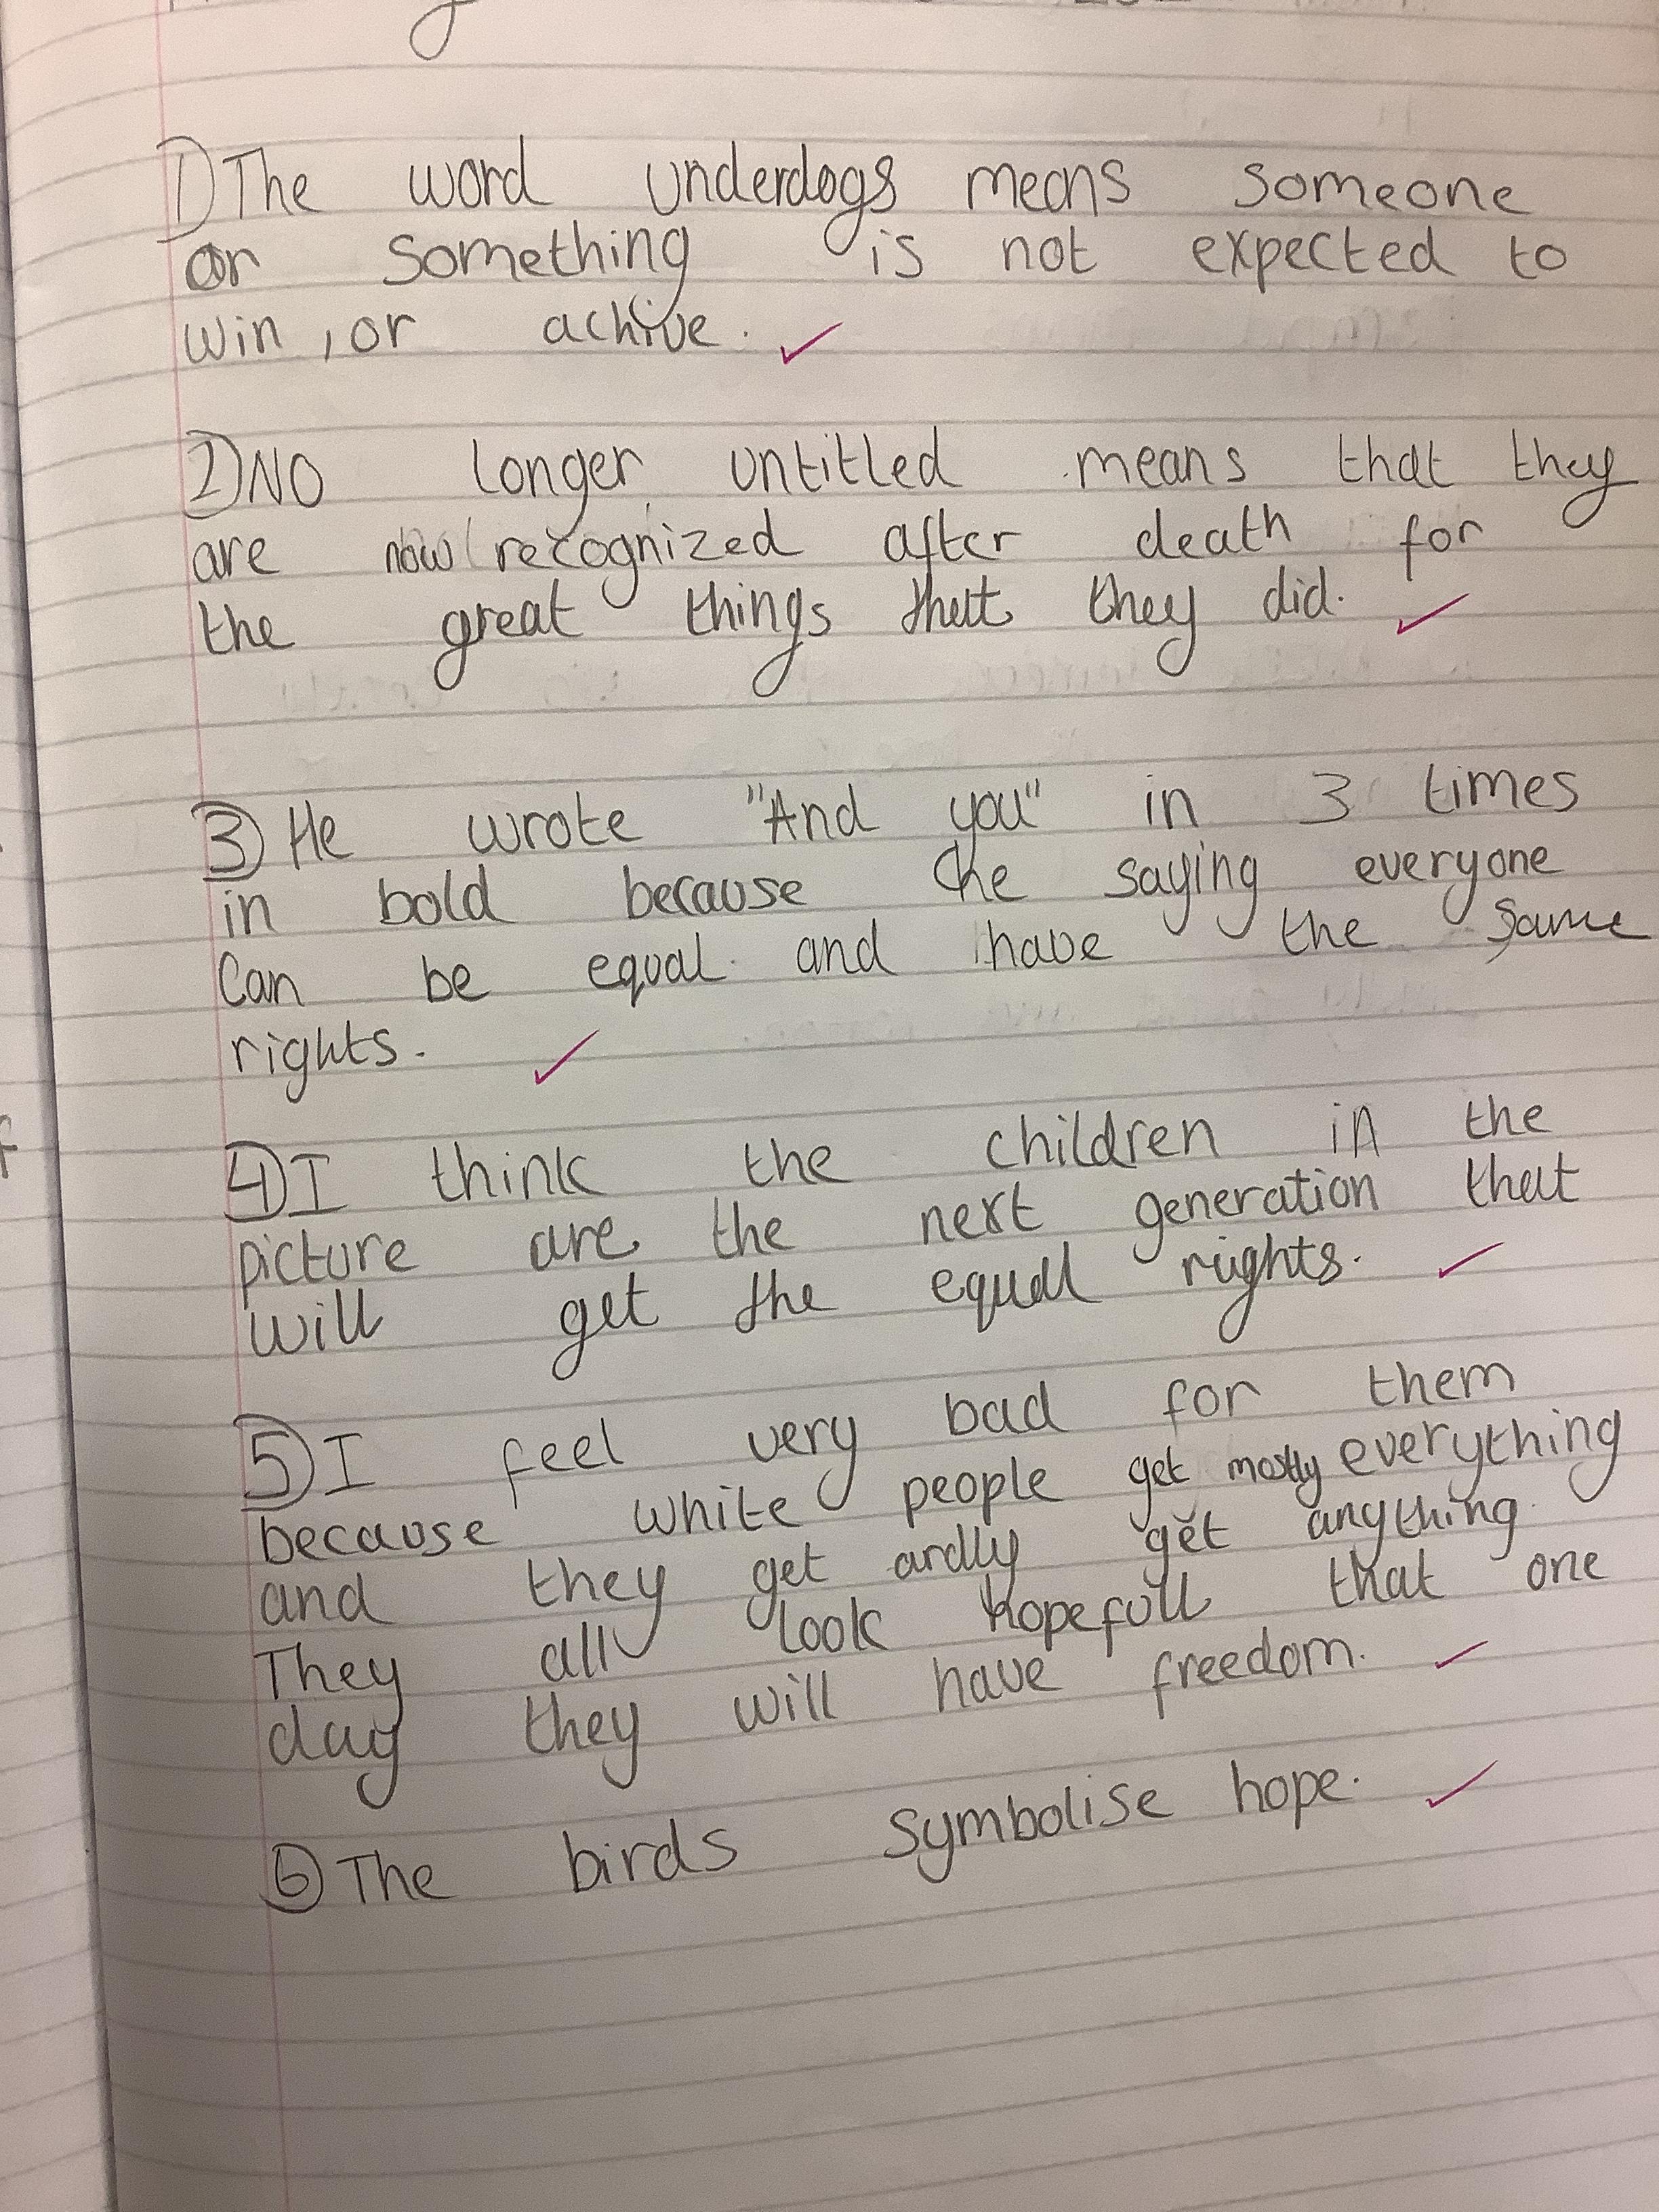 1) The word underdogs means someone
or something is not expected to
win , or achive .
2) No longer untitled means that they
are now recognized after death for
the great things that they did.
3) He wrote "And you" in 3 times
in bold because he saying everyone
Can be equal and have the same
rights.
4) I think the children in the
picture are the next generation that
will get the equal rights.
5) I feel very bad for them
because white people get mostly everything
and they get ardly get anything
They all look hopefull that one
day they will have freedom.
6) The birds symbolise hope.